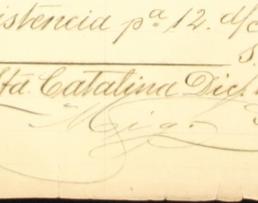 istencia pª 12. d/
S.
ta Catalina Dic.
Mig.